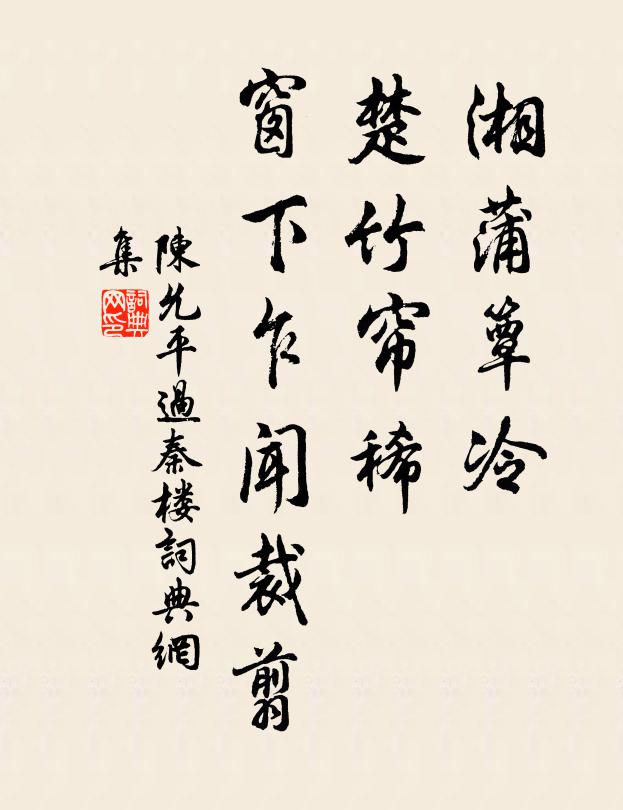 湘蒲簟冷
楚竹帘稀
窗下乍闻裁剪
陳允平過秦楼詞典網
集
詞典
网印